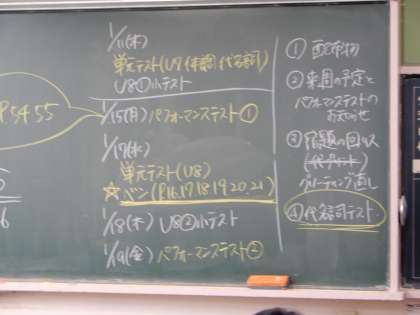 1/11(木)
単元テスト(U7 体調 代名詞)
U8①小テスト
P54 55
1/15(月)パフォーマンステスト①
1/17(水)
単元テスト(U8)
☆ペン(P.16.17.18.19.20.21)
1/18(木) U8②小テスト
1/19(金) パフォーマンステスト②
① 配布物
② 来週の予定と
パフォーマンステストの
お知らせ
③ 宿題の回収
グリーティング直し
④代名詞テスト